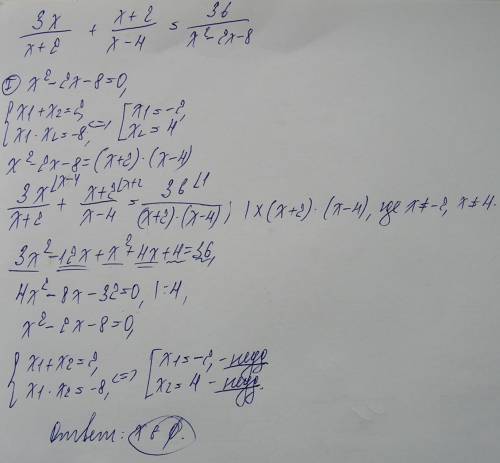 3x/(x+2) + (x+2)/(x-4) = 36/(x²-2x-8)
Ⅰ x²-2x-8=0,
{x1+x2=2, x1·x2=-8, <=> [x1=-2, x2=4,
x²-2x-8=(x+2)·(x-4)
3x⌊x-4/(x+2) + x+2⌊x+2/(x-4) = 36⌊1/((x+2)·(x-4)); | x (x+2)·(x-4), где x≠-2, x≠4.
3x²-12x+x²+4x+4=36,
4x²-8x-32=0, |:4,
x²-2x-8=0,
{x1+x2=2, x1·x2=-8, <=> [x1=-2, -неуд. x2=4 -неуд.
Ответ: x∈∅.